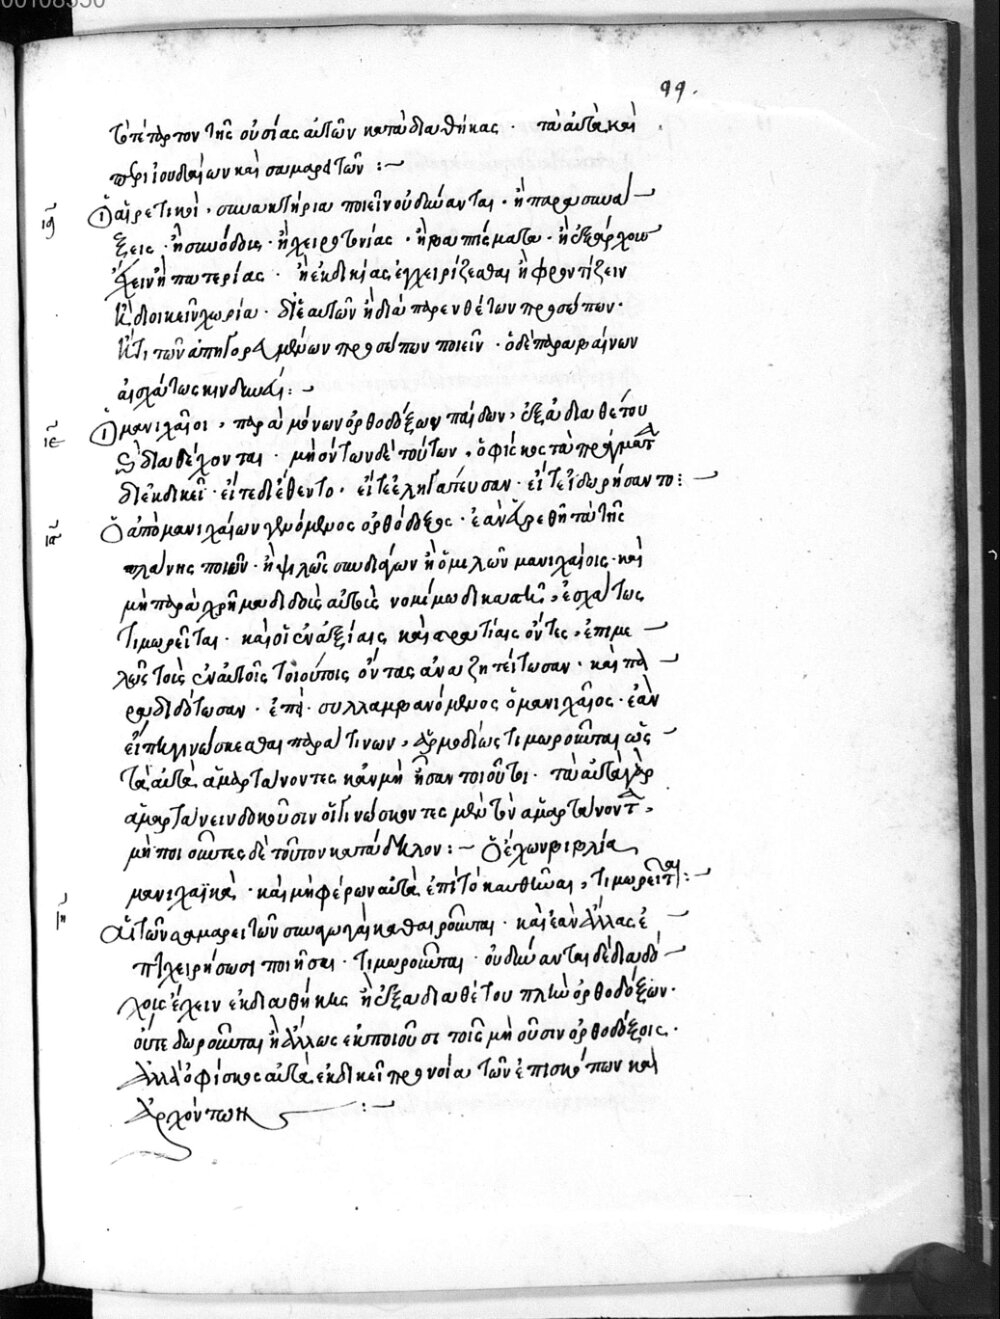 00108350
99.
τὸ τέταρτον τῆς οὐσίας αὐτῶν κατὰ διαθήκας · τὰ αὐτὰ καὶ
περὶ ἰουδαίων καὶ σαμαρειτῶν :~
ιθ Οἱ αἱρετικοὶ, συνακτήρια ποιεῖν οὐ δύνανται · ἢ παρασυνά
ξεις · ἢ συνόδους · ἢ χειροτονίας · ἢ βαπτίσματα · ἢ ἐξάρχους
ἔχειν ἢ πατερίας · ἢ ἐκδικίας ἐγχειρίζεσθαι ἢ φροντίζειν
ἢ διοικεῖν χωρία · δι' ἑαυτῶν ἢ διὰ παρενθέτων προσώπων ·
ἤ τι τῶν ἀπηγορευμένων προσώπων ποιεῖν · ὁ δὲ παραβαίνων
ἐσχάτως κινδυνεύει :~
Οἱ μανιχαῖοι, παρὰ μόνων ὀρθοδόξων παίδων, ἐξ ἀδιαθέτου
διαδέχονται · μὴ ὄντων δὲ τούτων, ὁ φίσκος τὰ πράγματα
διεκδικεῖ · εἴτε διέθεντο · εἴτε ἐληγάτευσαν · εἴτε ἐδωρήσαντο :~
Ὁ ἀπὸ μανιχαίων γενόμενος ὀρθόδοξος · ἐὰν εὑρεθῇ τὰ τῆς
πλάνης ποιῶν · ἢ ψιλῶς συνδιάγων ἢ ὁμιλῶν μανιχαίοις · καὶ
μὴ παραχρῆμα διδοὺς αὐτοὺς νομίμῳ δικαστῇ, ἐσχάτως
τιμωρεῖται · καὶ οἱ ἐν ἀξίαις καὶ στρατίαις ὄντες, ἐπιμε
λῶς τοὺς ἐν αὐτοῖς τοιούτους ὄντας ἀναζητείτωσαν · καὶ πα
ραδιδότωσαν · ἐπεὶ · συλλαμβανόμενος ὁ μανιχαῖος · ἐὰν
ἐπιγινώσκεσθαι παρά τινων, ἁρμοδίως τιμωροῦνται ὡς
τὰ αὐτὰ ἁμαρτάνοντες κἂν μὴ ἦσαν τοιοῦτοι · τὰ αὐτὰ γὰρ
ἁμαρτάνειν δοκοῦσιν οἱ γινώσκοντες μὲν τὸν ἁμαρτάνοντα,
μὴ ποιοῦντες δὲ τοῦτον κατάδηλον :~ Ὁ ἔχων βιβλία
μανιχαϊκὰ · καὶ μὴ φέρων αὐτὰ ἐπὶ τὸ καυθῆναι, τιμωρεῖται :~
αἱ τῶν σαμαρειτῶν συναγωγαὶ καθαιροῦνται · καὶ ἐὰν ἄλλας ἐ
πιχειρήσωσι ποιῆσαι · τιμωροῦνται · οὐ δύνανται δὲ διαδό
χους ἔχειν ἐκ διαθήκης ἢ ἐξ ἀδιαθέτου πλὴν ὀρθοδόξων ·
οὔτε δωροῦνται ἢ ἄλλως ἐκποιοῦσι τοῖς μὴ οὖσιν ὀρθοδόξοις ·
ἀλλ' ὁ φίσκος αὐτὰ ἐκδικεῖ προνοίᾳ τῶν ἐπισκόπων καὶ
ἀρχόντων :~